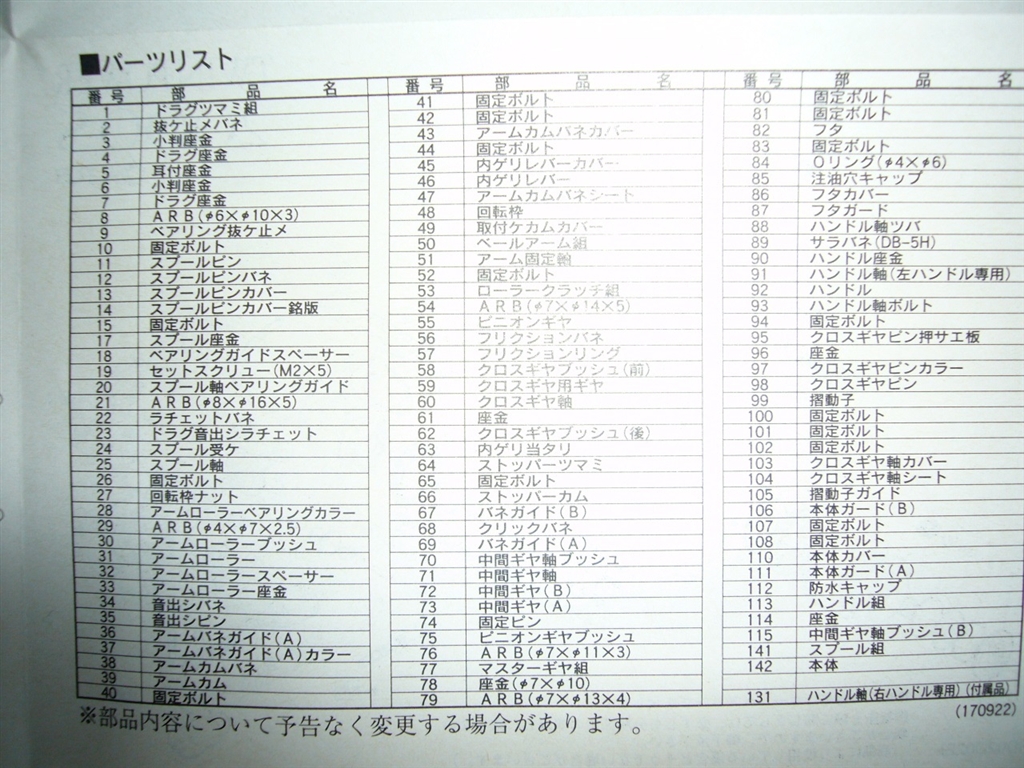 ■パーツリスト
番号 部品名
1 ドラグツマミ組
2 抜ケ止メバネ
3 小判座金
4 ドラグ座金
5 耳付座金
6 小判座金
7 ドラグ座金
8 ARB(φ6×φ10×3)
9 ベアリング抜ケ止メ
10 固定ボルト
11 スプールピン
12 スプールピンバネ
13 スプールピンカバー
14 スプールピンカバー銘版
15 固定ボルト
17 スプール座金
18 ベアリングガイドスペーサー
19 セットスクリュー(M2×5)
20 スプール軸ベアリングガイド
21 ARB(φ8×φ16×5)
22 ラチェットバネ
23 ドラグ音出シラチェット
24 スプール受ケ
25 スプール軸
26 固定ボルト
27 回転枠ナット
28 アームローラーベアリングカラー
29 ARB(φ4×φ7×2.5)
30 アームローラーブッシュ
31 アームローラー
32 アームローラースペーサー
33 アームローラー座金
34 音出シバネ
35 音出シピン
36 アームバネガイド(A)
37 アームバネガイド(A)カラー
38 アームカムバネ
39 アームカム
40 固定ボルト
番号 部品名
41 固定ボルト
42 固定ボルト
43 アームカムバネカバー
44 固定ボルト
45 内ゲリレバーカバー
46 内ゲリレバー
47 アームカムバネシート
48 回転枠
49 取付ケカムカバー
50 ベールアーム組
51 アーム固定軸
52 固定ボルト
53 ローラークラッチ組
54 ARB(φ7×φ14×5)
55 ピニオンギヤ
56 フリクションバネ
57 フリクションリング
58 クロスギヤブッシュ(前)
59 クロスギヤ用ギヤ
60 クロスギヤ軸
61 座金
62 クロスギヤブッシュ(後)
63 内ゲリ当タリ
64 ストッパーツマミ
65 固定ボルト
66 ストッパーカム
67 バネガイド(B)
68 クリックバネ
69 バネガイド(A)
70 中間ギヤ軸ブッシュ
71 中間ギヤ軸
72 中間ギヤ(B)
73 中間ギヤ(A)
74 固定ピン
75 ピニオンギヤブッシュ
76 ARB(φ7×φ11×3)
77 マスターギヤ組
78 座金(φ7×φ10)
79 ARB(φ7×φ13×4)
番号 部品名
80 固定ボルト
81 固定ボルト
82 フタ
83 固定ボルト
84 Oリング(φ4×φ6)
85 注油穴キャップ
86 フタカバー
87 フタガード
88 ハンドル軸ツバ
89 サラバネ(DB-5H)
90 ハンドル座金
91 ハンドル軸(左ハンドル専用)
92 ハンドル
93 ハンドル軸ボルト
94 固定ボルト
95 クロスギヤピン押サエ板
96 座金
97 クロスギヤピンカラー
98 クロスギヤピン
99 摺動子
100 固定ボルト
101 固定ボルト
102 固定ボルト
103 クロスギヤ軸カバー
104 クロスギヤ軸シート
105 摺動子ガイド
106 本体ガード(B)
107 固定ボルト
108 固定ボルト
110 本体カバー
111 本体ガード(A)
112 防水キャップ
113 ハンドル組
114 座金
115 中間ギヤ軸ブッシュ(B)
141 スプール組
142 本体
131 ハンドル軸(右ハンドル専用)(付属品)
(170922)
※部品内容について予告なく変更する場合があります。